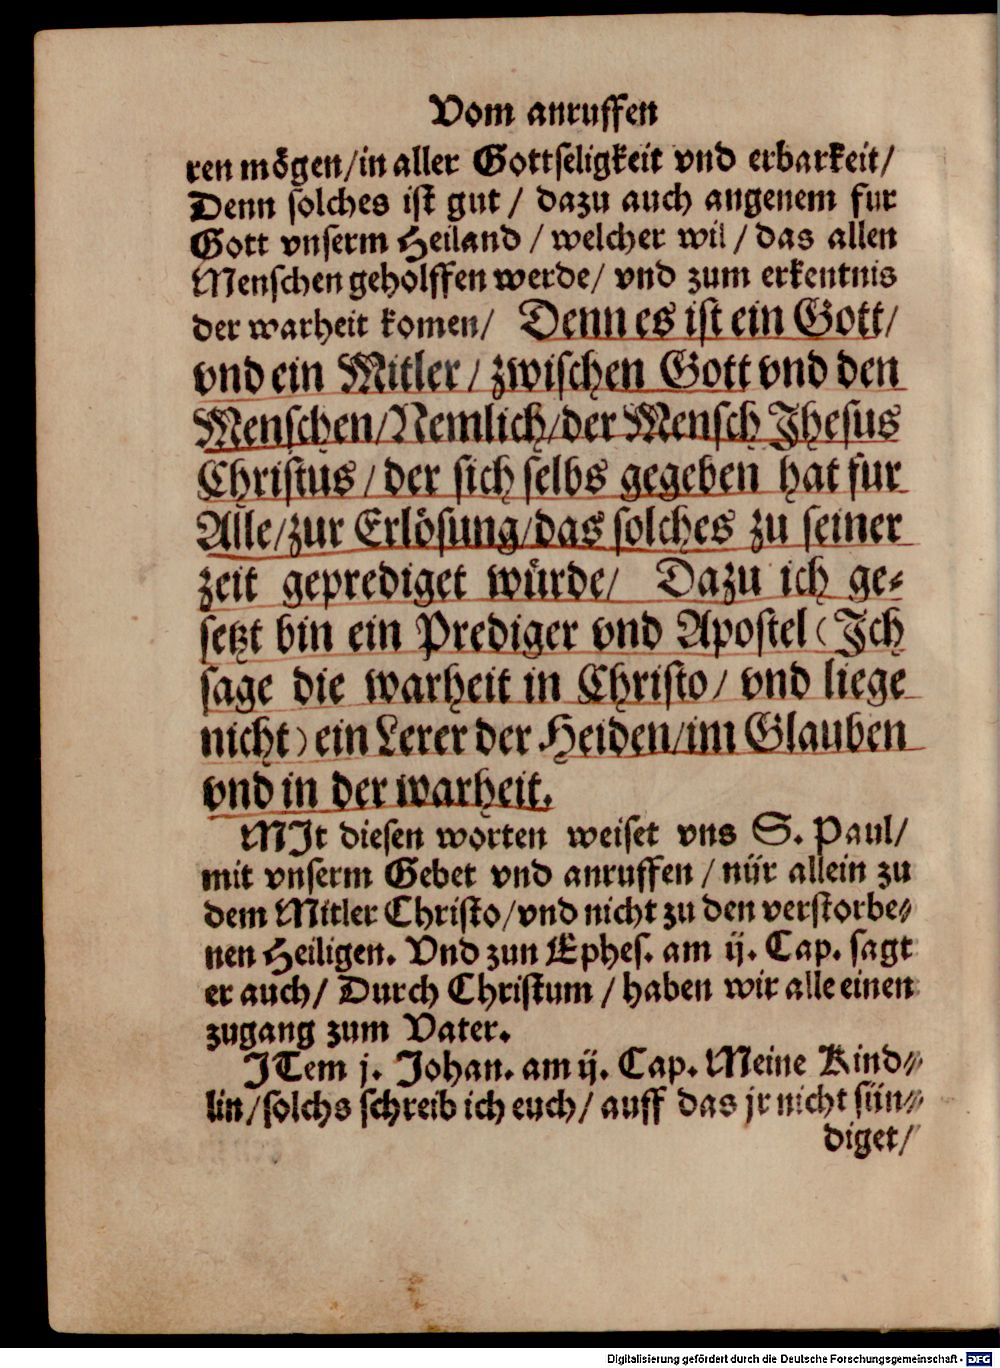 Vom anruffen
ren mögen/in aller Gottseligkeit vnd erbarkeit/
Denn solches ist gut / dazu auch angenem fur
Gott vnserm Heiland / welcher wil / das allen
Menschen geholffen werde/ vnd zum erkentnis
der warheit komen/ Denn es ist ein Gott/
vnd ein Mitler / zwischen Gott vnd den
Menschen/Nemlich/der Mensch Jhesus
Christus / der sich selbs gegeben hat fur
Alle/zur Erlösung/das solches zu seiner
zeit geprediget würde/ Dazu ich ge-
setzt bin ein Prediger vnd Apostel (Ich
sage die warheit in Christo/ vnd liege
nicht) ein Lerer der Heiden/im Glauben
vnd in der warheit.
MIt diesen worten weiset vns S. Paul/
mit vnserm Gebet vnd anruffen / nür allein zu
dem Mitler Christo/vnd nicht zu den verstorbe-
nen Heiligen. Vnd zun Ephes. am ij. Cap. sagt
er auch/ Durch Christum / haben wir alle einen
zugang zum Vater.
ITem j. Johan. am ij. Cap. Meine Kind-
lin/solchs schreib ich euch/ auff das jr nicht sün-
diget/
Digitalisierung gefördert durch die Deutsche Forschungsgemeinschaft - DFG